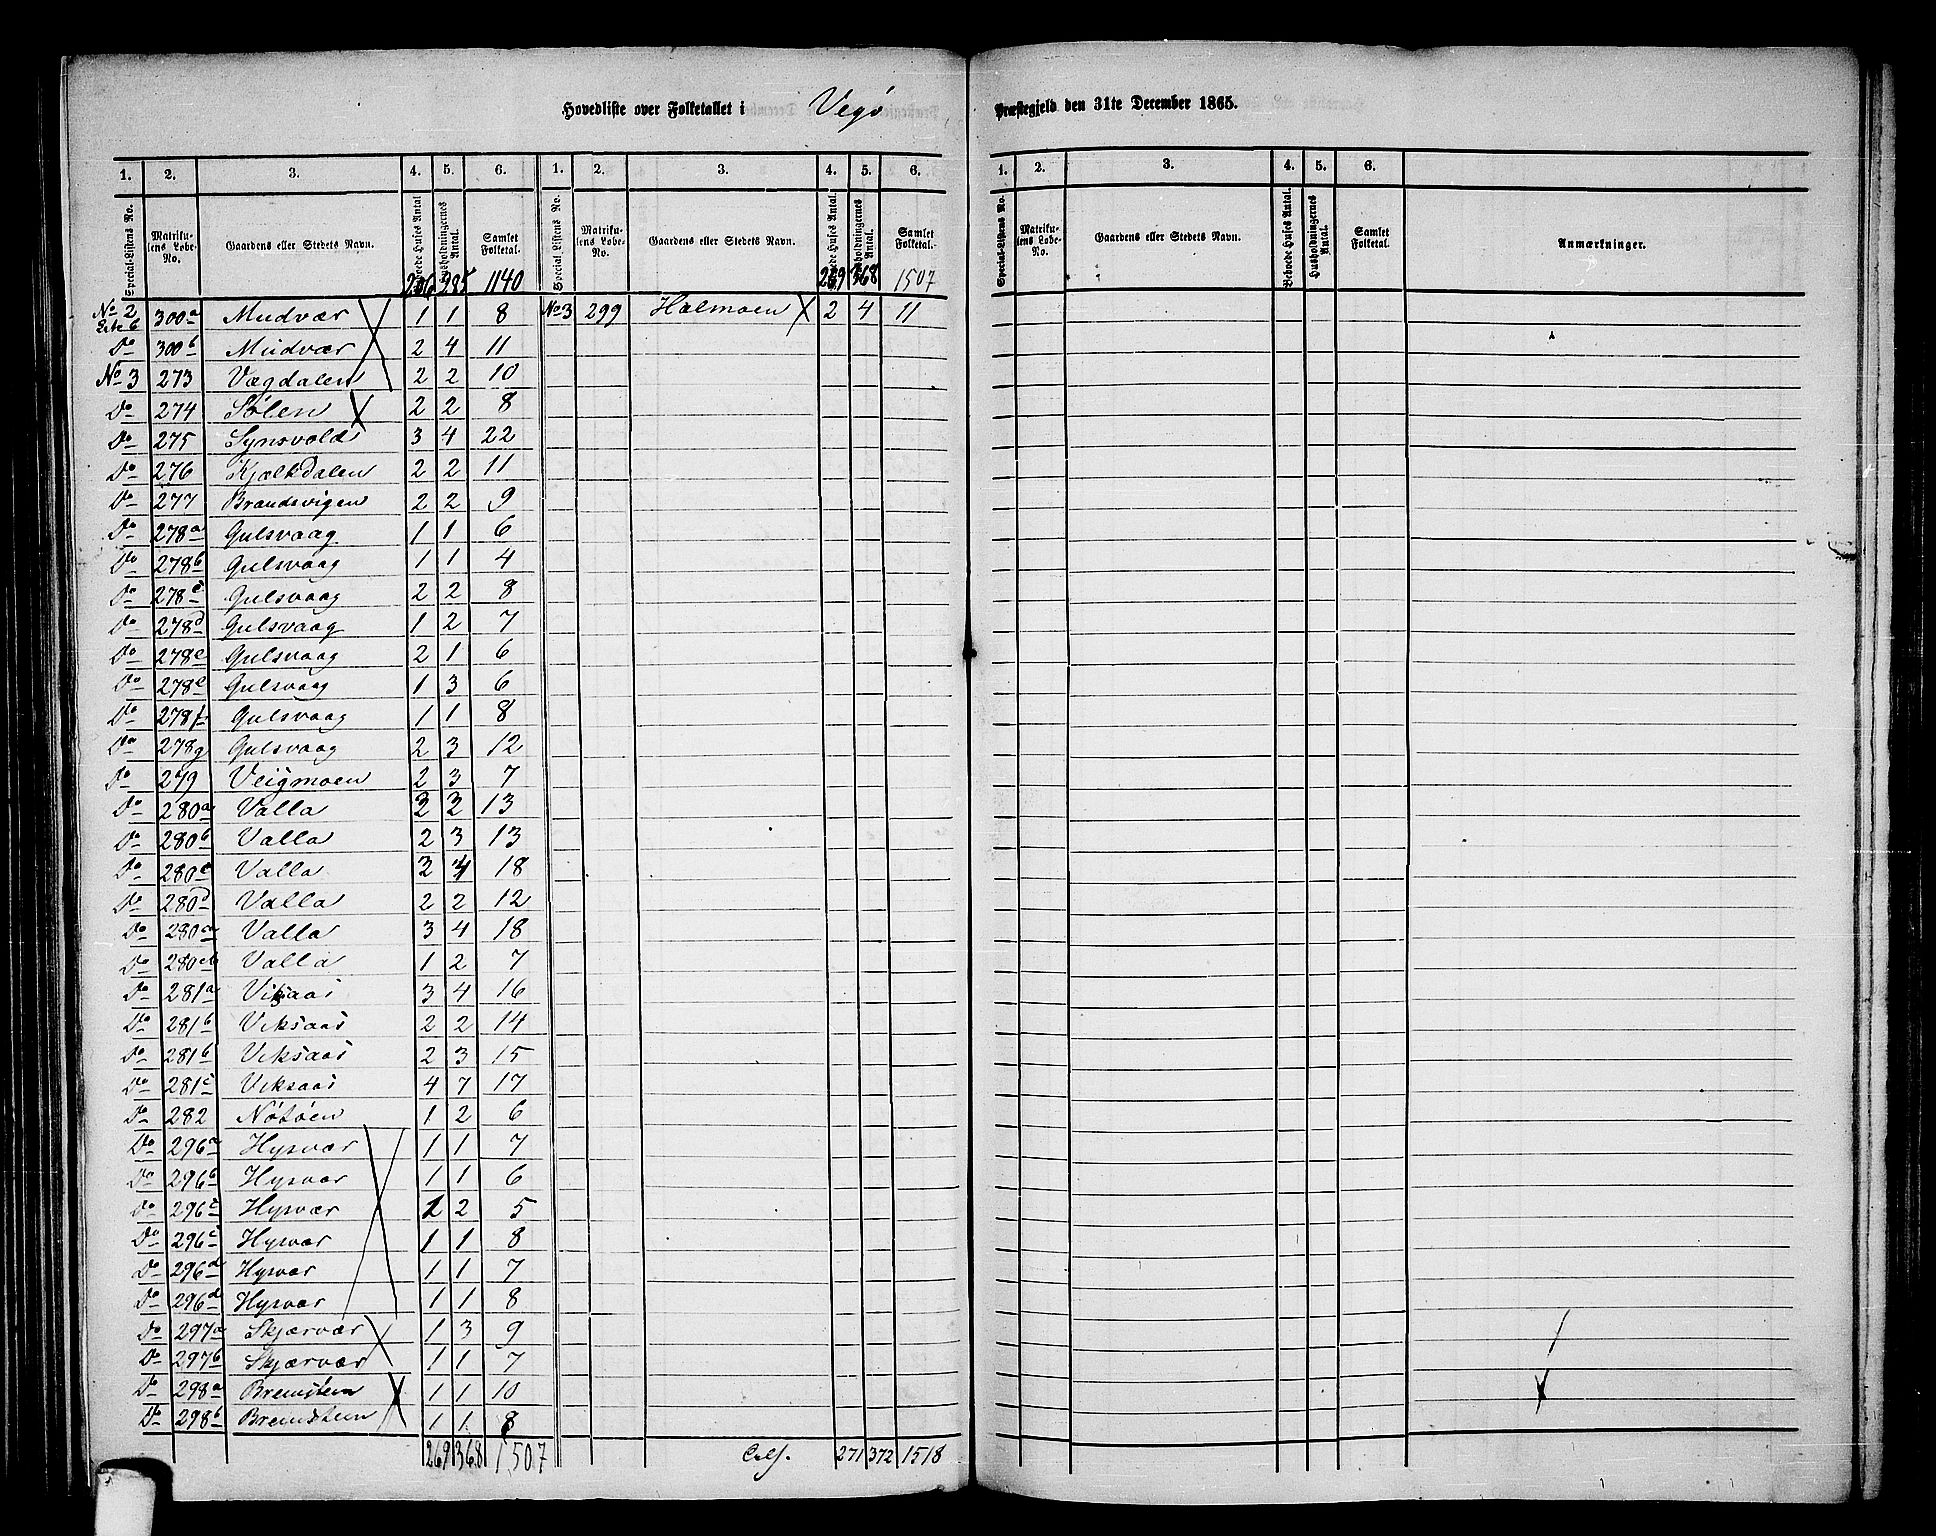 Hovedliste over Folketallet i Vegø Præstegjeld den 31te December 1865.
1. 2. 3. 4. 5. 6. 1. 2. 3. 4. 5. 6. 1. 2. 3. 4. 5. 6.
Special-Listens No. Matrikulens Løbe-No. Gaardens eller Stedets Navn. Beboede Huses Antal. Husholdningernes Antal. Samlet Folketal. Special-Listens No. Matrikulens Løbe-No. Gaardens eller Stedets Navn. Beboede Huses Antal. Husholdningernes Antal. Samlet Folketal. Special-Listens No. Matrikulens Løbe-No. Gaardens eller Stedets Navn. Beboede Huses Antal. Husholdningernes Antal. Samlet Folketal. Anmærkninger.
206 285 1140 269 368 1507
No 2 300a Mudvær 1 1 8 No 3 299 Holmoen X 2 4 11
Do 300b Mudvær 2 4 11
No 3 273 Vægdalen 2 2 10
Do 274 Sølen X 2 2 8
Do 275 Synsvold 3 4 22
Do 276 Kjælkdalen 2 2 11
Do 277 Brandsvigen 2 2 9
Do 278a Gulsvaag 1 1 6
Do 278b Gulsvaag 1 1 4
Do 278c Gulsvaag 2 2 8
Do 278d Gulsvaag 1 2 7
Do 278e Gulsvaag 2 1 6
Do 278e Gulsvaag 1 3 6
Do 278f Gulsvaag 1 1 8
Do 278g Gulsvaag 2 3 12
Do 279 Veigmoen 2 3 7
Do 280a Valla 13
Do 280b Valla 2 3 13
Do 280c Valla 18
Do 280d Valla 2 2 12
Do Valla 3 4 18
Do Valla 1 2 7
Do 281a Viksaas 3 4 16
Do 281b Viksaas 2 2 14
Do 281b Viksaas 2 3 15
Do 281c Viksaas 4 7 17
Do 282 Nøtøen 1 2 6
Do 296a Hysvær 1 1 7
Do 296b Hysvær 1 1 6
Do 296c Hysvær 2 5
Do 296c Hysvær 1 1 8
Do 296d Hysvær 1 1 7
Do 296d Hysvær 1 1 8
Do 297a Skjærvær 1 3 9
Do 297b Skjærvær 1 1 7
Do 298a Bremsteen 1 1 10
Do 298b Bremsteen 1 1 8
269 368 1507 271 372 1518